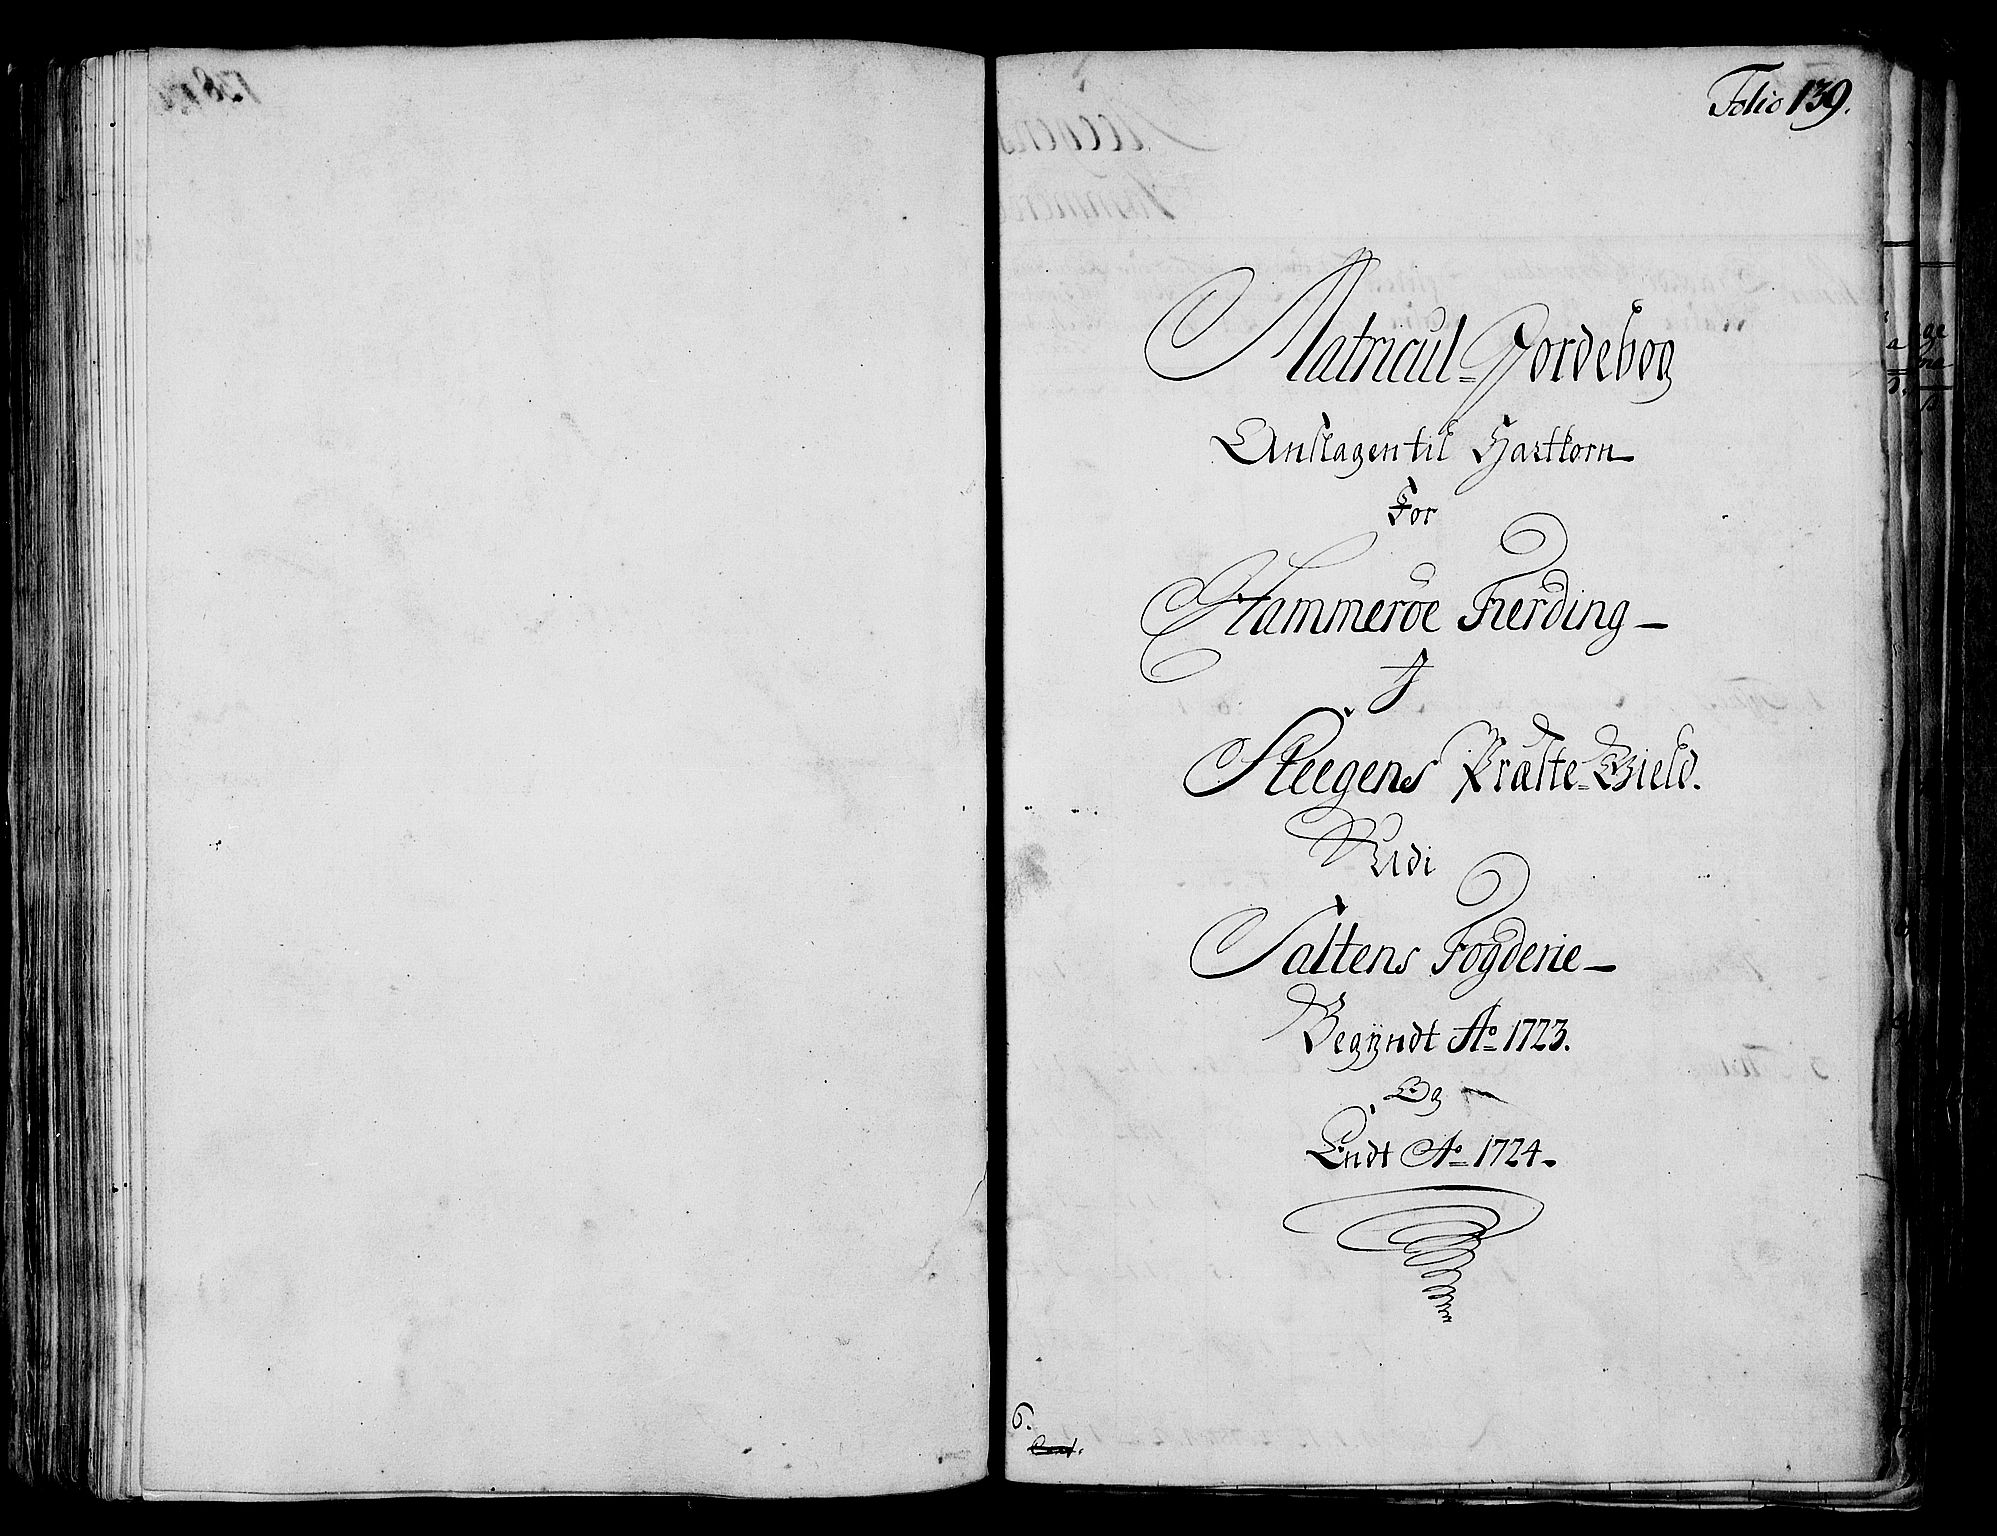 Folio 139.
Matricul=Jordebog
Anslagen til Hartkorn
For
Hammerøe Fierding
J
Steegens Præste=Gield.
Udi
Saltens Fogderie
Begÿndt Ao 1723.
Og
Endt Ao 1724.
6.